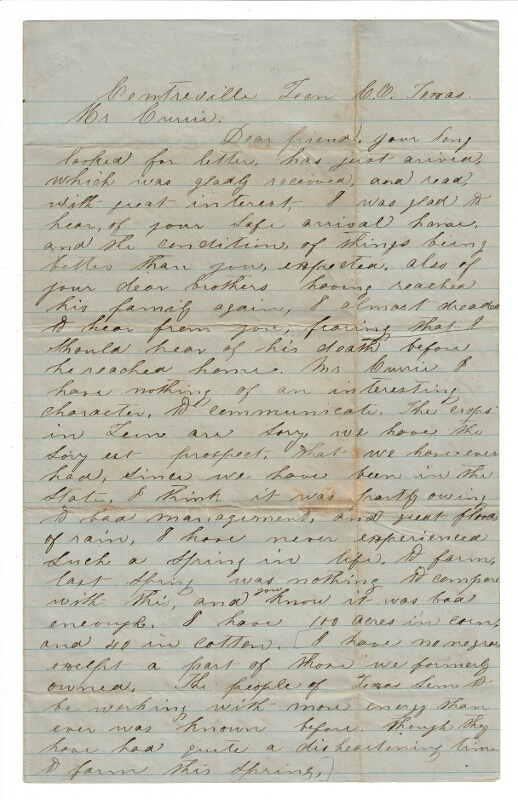 Centreville Leon C.O. Texas
Mr Currie.
Dear friend, your long
looked for letter, has just arived,
which was gladly received, and read,
with great interest, I was glad to
hear, of your safe arival home,
and the condition, of things being
better than you, expected, also of
your dear brothers having reached
his family again, I almost dreaded
to hear from you, fearing that I
should hear of his death before
he reached home. Mr Currie I
have nothing of an interesting
character, to communicate. The crops
in Leon are sory, we have the
sory est prospect, that we have ever
had, since we have been in the
State, I think it was partly owing
to bad management, and great flood
of rain, I have never experienced
such a spring in life, to farm,
last spring was nothing to compare
with this, and you know it was bad
eneough. I have 100 acres in corn,
and 40 in cotton. (I have no negroes
except a part of those we formerly
owned. The people of Texas seem to
be working with more energy than
ever was known before. though they
have had quite a disheartening time
to farm this spring,)